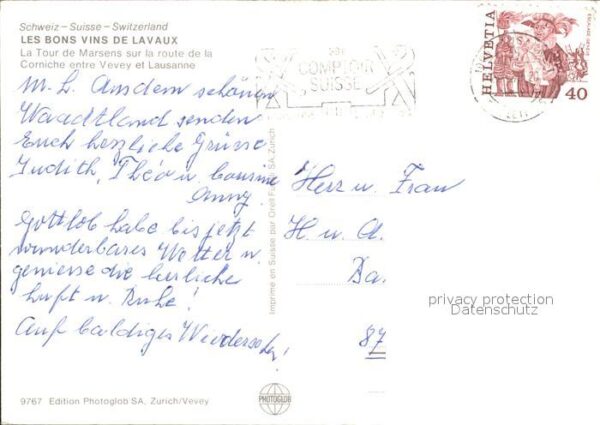 Schweiz – Suisse – Switzerland
LES BONS VINS DE LAVAUX
La Tour de Marsens sur la route de la
Corniche entre Vevey et Lausanne
M. L. Aus dem schönen
Waadtland senden
Euch herzliche Grüsse
Judith, Théo u. Cousine
Anny.
Gottlob habe bis jetzt
wunderbares Wetter u.
geniesse die herrliche
Luft u. Ruhe!
Auf baldiges Wiedersehen!
9767 Edition Photoglob SA, Zurich/Vevey
PHOTOGLOB
Imprimé en Suisse par Orell Füssli SA, Zurich
COMPTOIR
SUISSE
HELVETIA
ESCALADE GENEVE
40
Herr u. Frau
H. u. A.
Ba.
87
privacy protection
Datenschutz